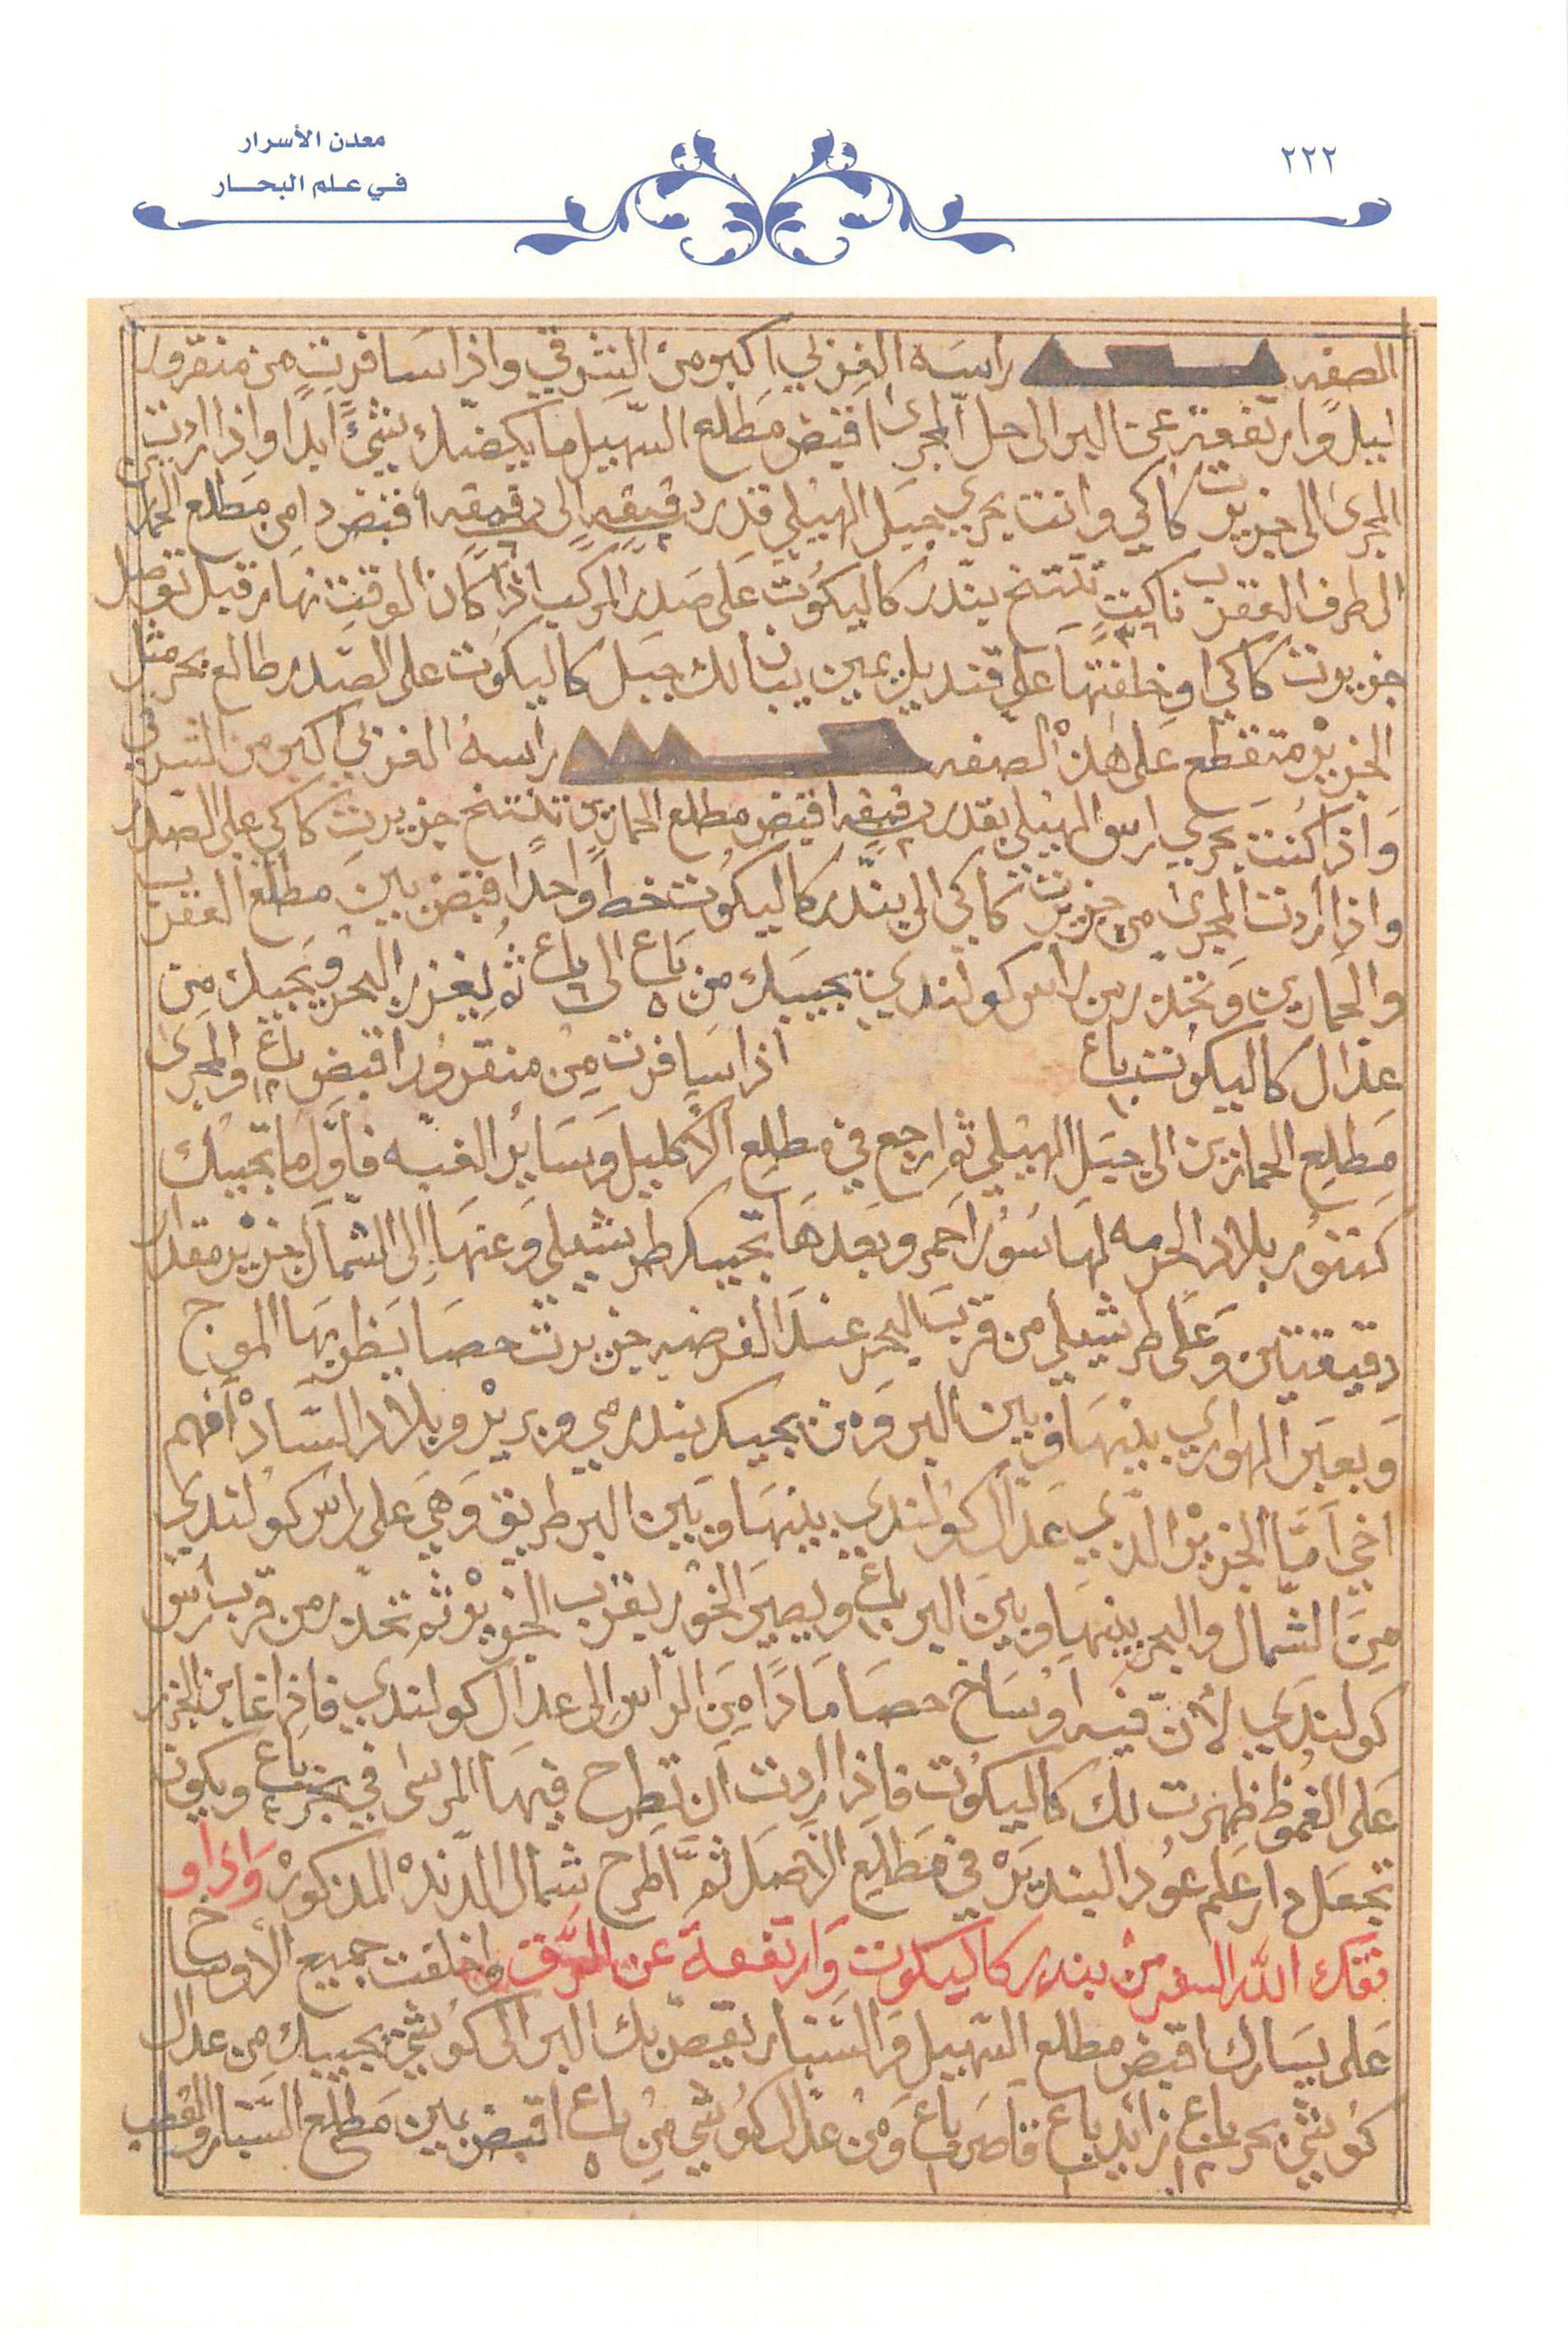 ٢٢٢
معدن الأسرار
في علم البحار
الصفه راسه الغربي اكبر من الشرقي واذا سافرت من منقرور
ليلًا وارتفعة عن البر الى حل المجرى اقبض مطلع السهيل ما يكيضك شيءً ابدا واذا اردت
المجرى الى جزيرت كاكي وانت بحري جبل الهيلي قدر دقيقه ٢ الى دقيقه ٦ اقبض دامن مطلع الحمارين
الى طرف العقرب ناكت تنتخ بندر كاليكوت على صدر المركب اذا كان الوقت نهار قبل توصل
جزيرت كاكي او خلفتها على قنديل يمين يبان لك جبل كاليكوت على الصدر طالع بحر مثل
الجزيره متقطع على هذه الصفه راسه الغربي اكبر من الشرقي
وَاذا كنت بحري راس الهيلي بقدر دقيقه ٢ اقبض مطلع الحمارين تنتخ جزيرت كاكي على الصدر
واذا اردت المجرى من جزيرت كاكي الى بندر كاليكوت خطاً واحدا اقبض بين مطلع العقرب
والحمارين وَتحذر من راس كولندي يجيبك من باع ٥ الى باع ٦ ثم يغزر البحر ويجيبك من
عدال كاليكوت باع ١٠ اذا سافرت من منقرور اقبض باع ١٢ والمجرى
مطلع الحمارين الى جبل الهيلي ثم ارجع في مطلع الاكليل وَساير الغبه فاوّل ما تجيبك
كننور بلاد الحرمه لها سور احمر وبعدها تجيبك طرشيلي وعنها الى الشمال جزيره مقدار
دقيقتين وَعلى طرشيلي من قرب البحر عند الفرضه جزيرت حصا يظربها الموج
وَبعبر الهواري بينها وبين البر وَمن يجيبك بندر مي وزريره وبلاد الساده افهم
اخي اَمّا الجزيره الذي عدال كولندي بينها وبين البر طريق وَهي على راس كولندي
مِن الشمال والبحر بينها وبين البر باع ١٠ ويصير الخور بقرب الجزيره ثم تحذر من قرب راس
كولندي لأن فيه اوساخ حصا مادا من الراس الى عدال كولندي فاذا غابن الجزر
على الغموظ ظهرت لك كاليكوت فاذا اردت ان تطرح فيها المرسى في بحر باع ٤ ويكون
تجعل دار علم عود البنديره في مطلع الاصل ثمّ اطرح شمال الدنده المذكوره وَاذا و
فقك الله السفر من بندر كاليكوت وَارتفعة عن الرق واخلفت جميع الأوساخ
عَلى يسارك اقبض مطلع السهيل وَالسنبار يقيصّ بك البر الى كوشي يجيبك من عدال
كوشي بحر باع ١٢ زائد باع ١ قاصر باع ١ وَمن عدال كوشي من باع ٥ اقبض بين مَطلع السنبار والقطب